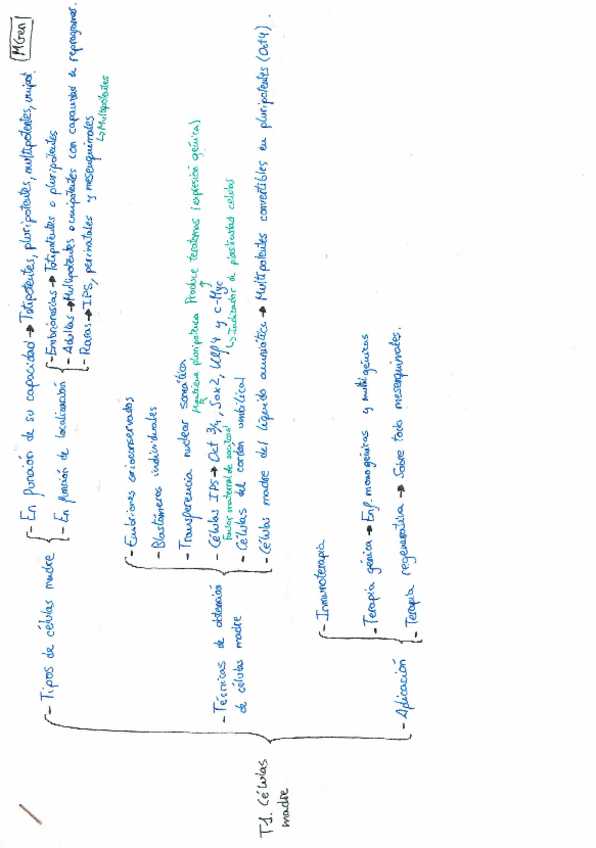 MGen
T1. Células
madre
- Tipos de células madre
- En función de su capacidad → Totipotentes, pluripotentes, multipotentes, unipot.
- En función de localización
- Embrionarias → Totipotentes o pluripotentes
- Adultas → Multipotentes o unipotentes con capacidad de reprogramar.
- Raras → IPS, perinatales y mesenquimales
↳ Multipotentes
- Técnicas de obtención
de células madre
- Embriones crioconservados
- Blastómeros individuales
- Transferencia nuclear somática
Mantiene pluripotencia Produce teratomas (expresión génica)
- Células IPS → Oct 3/4, Sox2, Klf4 y c-Myc
Factor maternal de
↳ Indicador de plasticidad celular
- Células del cordón umbilical
- Células madre del líquido amniótico → Multipotentes convertibles en pluripotentes (Oct4).
- Aplicación
- Inmunoterapia
- Terapia génica → Enf. monogénicas y multigénicas
- Terapia regenerativa → Sobre todo mesenquimales.